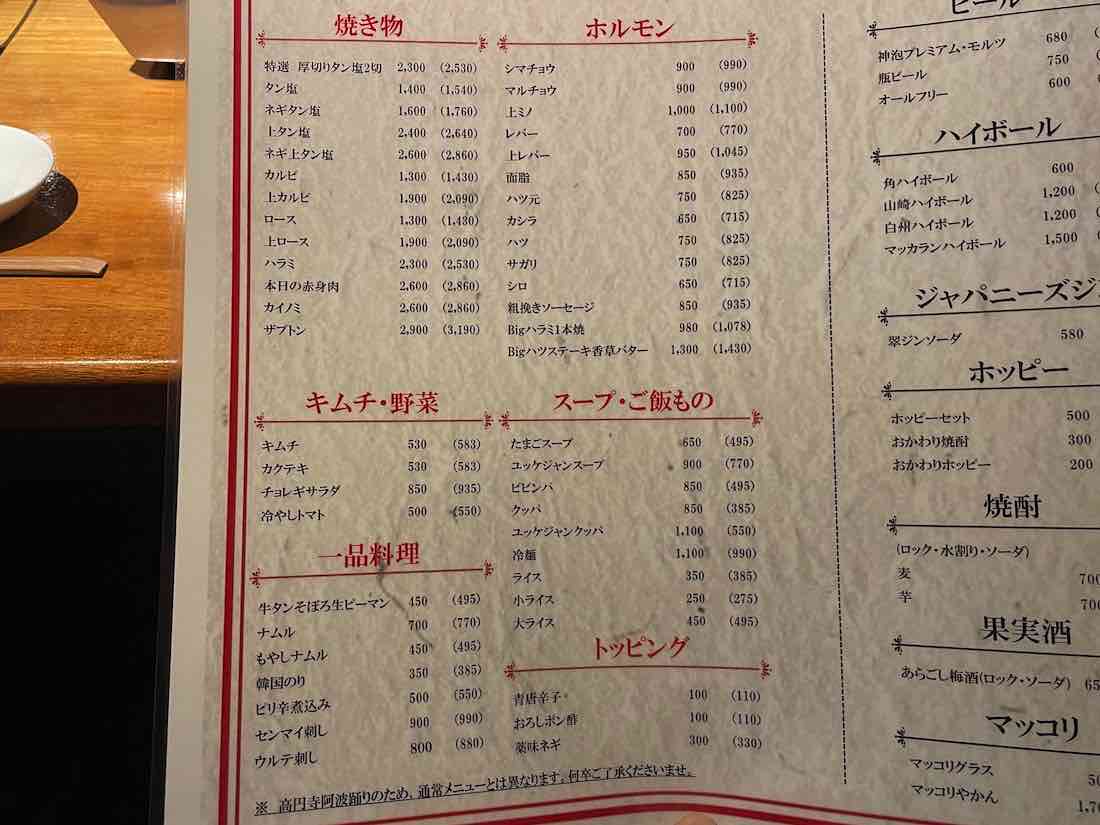 焼き物
特選 厚切りタン塩2切 2,300 (2,530)
タン塩 1,400 (1,540)
ネギタン塩 1,600 (1,760)
上タン塩 2,400 (2,640)
ネギ上タン塩 2,600 (2,860)
カルビ 1,300 (1,430)
上カルビ 1,900 (2,090)
ロース 1,300 (1,430)
上ロース 1,900 (2,090)
ハラミ 2,300 (2,530)
本日の赤身肉 2,600 (2,860)
カイノミ 2,600 (2,860)
ザブトン 2,900 (3,190)
キムチ・野菜
キムチ 530 (583)
カクテキ 530 (583)
チョレギサラダ 850 (935)
冷やしトマト 500 (550)
一品料理
牛タンそぼろ生ピーマン 450 (495)
ナムル 700 (770)
もやしナムル 450 (495)
韓国のり 350 (385)
ピリ辛煮込み 500 (550)
センマイ刺し 900 (990)
ウルテ刺し 800 (880)
ホルモン
シマチョウ 900 (990)
マルチョウ 900 (990)
上ミノ 1,000 (1,100)
レバー 700 (770)
上レバー 950 (1,045)
面脂 850 (935)
ハツ元 750 (825)
カシラ 650 (715)
ハツ 750 (825)
サガリ 750 (825)
シロ 650 (715)
粗挽きソーセージ 850 (935)
Bigハラミ1本焼 980 (1,078)
Bigハツステーキ香草バター 1,300 (1,430)
スープ・ご飯もの
たまごスープ 650 (495)
ユッケジャンスープ 900 (770)
ビビンバ 850 (495)
クッパ 850 (385)
ユッケジャンクッパ 1,100 (550)
冷麺 1,100 (990)
ライス 350 (385)
小ライス 250 (275)
大ライス 450 (495)
トッピング
青唐辛子 100 (110)
おろしポン酢 100 (110)
薬味ネギ 300 (330)
※ 高円寺阿波踊りのため、通常メニューとは異なります。何卒ご了承くださいませ。
ビール
神泡プレミアム・モルツ 680
瓶ビール 750
オールフリー 600
ハイボール
角ハイボール 600
山崎ハイボール 1,200
白州ハイボール 1,200
マッカランハイボール 1,500
ジャパニーズジ
翠ジンソーダ 580
ホッピー
ホッピーセット 500
おかわり焼酎 300
おかわりホッピー 200
焼酎
(ロック・水割り・ソーダ)
麦 700
芋 700
果実酒
あらごし梅酒(ロック・ソーダ)
マッコリ
マッコリグラス
マッコリやかん